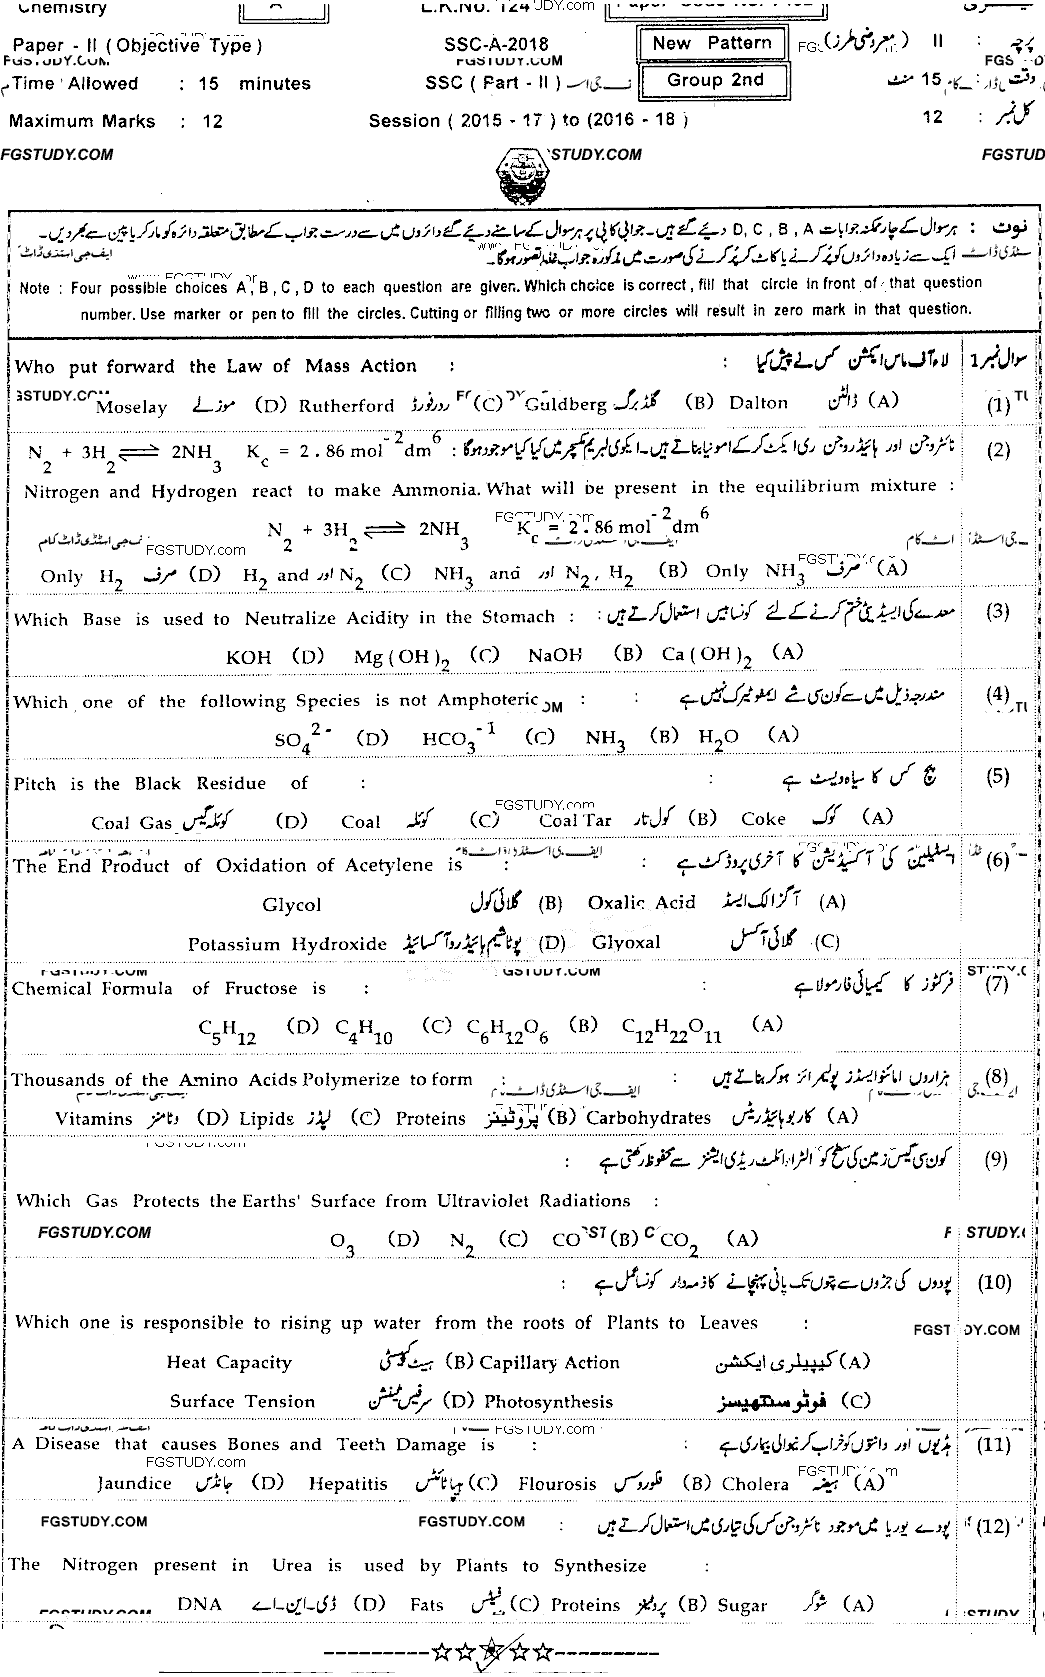 Chemistry A L.K.No. 124
Paper - II ( Objective Type ) SSC-A-2018 New Pattern پرچہ : II ( معروضی طرز )
FGSTUDY.COM FGSTUDY.COM
Time Allowed : 15 minutes SSC ( Part - II ) Group 2nd 15 منٹ
Maximum Marks : 12 Session ( 2015 - 17 ) to (2016 - 18 ) کل نمبر : 12
FGSTUDY.COM STUDY.COM FGSTUD
نوٹ : ہر سوال کے چار ممکنہ جوابات D , C , B , A دیئے گئے ہیں۔ جوابی کاپی پر ہر سوال کے سامنے دیئے گئے دائروں میں سے درست جواب کے مطابق متعلقہ دائرہ کو مارکر یا پین سے بھر دیں۔
ایک سے زیادہ دائروں کو پُر کرنے یا کاٹ کر پُر کرنے کی صورت میں مذکورہ جواب غلط تصور ہوگا۔
Note : Four possible choices A , B , C , D to each question are given. Which choice is correct , fill that circle in front of that question
number. Use marker or pen to fill the circles. Cutting or filling two or more circles will result in zero mark in that question.
Who put forward the Law of Mass Action : لاء آف ماس ایکشن کس نے پیش کیا : سوال نمبر 1
Moselay موزلے (D) Rutherford ردرفورڈ (C) Guldberg گلڈبرگ (B) Dalton ڈالٹن (A) (1)
N2 + 3H2 ⇌ 2NH3 Kc = 2.86 mol-2dm6 : نائٹروجن اور ہائیڈروجن ری ایکٹ کر کے امونیا بناتے ہیں۔ ایکوی لبریم مکسچر میں کیا کیا موجود ہوگا (2)
Nitrogen and Hydrogen react to make Ammonia. What will be present in the equilibrium mixture :
N2 + 3H2 ⇌ 2NH3 Kc = 2.86 mol-2dm6
FGSTUDY.com
Only H2 صرف (D) H2 and اور N2 (C) NH3 and اور N2, H2 (B) Only NH3 صرف (A)
Which Base is used to Neutralize Acidity in the Stomach : معدے کی ایسڈیٹی ختم کرنے کے لئے کونسا بیس استعمال کرتے ہیں : (3)
KOH (D) Mg(OH)2 (C) NaOH (B) Ca(OH)2 (A)
Which one of the following Species is not Amphoteric : مندرجہ ذیل میں سے کون سی شے ایمفوٹیرک نہیں ہے : (4)
SO4 2- (D) HCO3 -1 (C) NH3 (B) H2O (A)
Pitch is the Black Residue of : پچ کس کا سیاہ ویسٹ ہے : (5)
Coal Gas کوئلہ گیس (D) Coal کوئلہ (C) Coal Tar کول تار (B) Coke کوک (A)
The End Product of Oxidation of Acetylene is : ایسٹیلین کی آکسیڈیشن کا آخری پروڈکٹ ہے : (6)
Glycol گلائی کول (B) Oxalic Acid آگزالک ایسڈ (A)
Potassium Hydroxide پوٹاشیم ہائیڈروآکسائیڈ (D) Glyoxal گلائی آکسل (C)
Chemical Formula of Fructose is : فرکٹوز کا کیمیائی فارمولا ہے : (7)
C5H12 (D) C4H10 (C) C6H12O6 (B) C12H22O11 (A)
Thousands of the Amino Acids Polymerize to form : ہزاروں امائنو ایسڈز پولیمرائز ہو کر بناتے ہیں : (8)
Vitamins وٹامنز (D) Lipids لپڈز (C) Proteins پروٹینز (B) Carbohydrates کاربوہائیڈریٹس (A)
کون سی گیس زمین کی سطح کو الٹراوائلٹ ریڈی ایشنز سے محفوظ رکھتی ہے : (9)
Which Gas Protects the Earths' Surface from Ultraviolet Radiations :
FGSTUDY.COM O3 (D) N2 (C) CO (B) CO2 (A)
پودوں کی جڑوں سے پتوں تک پانی پہنچانے کا ذمہ دار کونسا عمل ہے : (10)
Which one is responsible to rising up water from the roots of Plants to Leaves :
Heat Capacity ہیٹ کپیسٹی (B) Capillary Action کیپیلری ایکشن (A)
Surface Tension سرفیس ٹینشن (D) Photosynthesis فوٹو سنتھیسز (C)
A Disease that causes Bones and Teeth Damage is : ہڈیوں اور دانتوں کو خراب کرنیوالی بیماری ہے : (11)
FGSTUDY.com
Jaundice جانڈس (D) Hepatitis ہیپاٹائٹس (C) Flourosis فلوروسس (B) Cholera ہیضہ (A)
FGSTUDY.COM FGSTUDY.COM : پودے یوریا میں موجود نائٹروجن کس کی تیاری میں استعمال کرتے ہیں (12)
The Nitrogen present in Urea is used by Plants to Synthesize :
DNA ڈی۔این۔اے (D) Fats فیٹس (C) Proteins پروٹینز (B) Sugar شوگر (A)